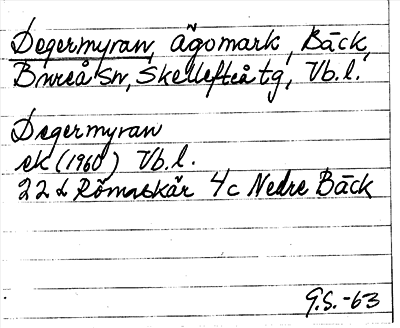 Degermyran, ägomark, Bäck,
Bureå sn, Skellefteå tg, Vb.l.
Degermyran
ek (1960) Vb.l.
22 L Römsskär 4c Nedre Bäck
G.S. -63